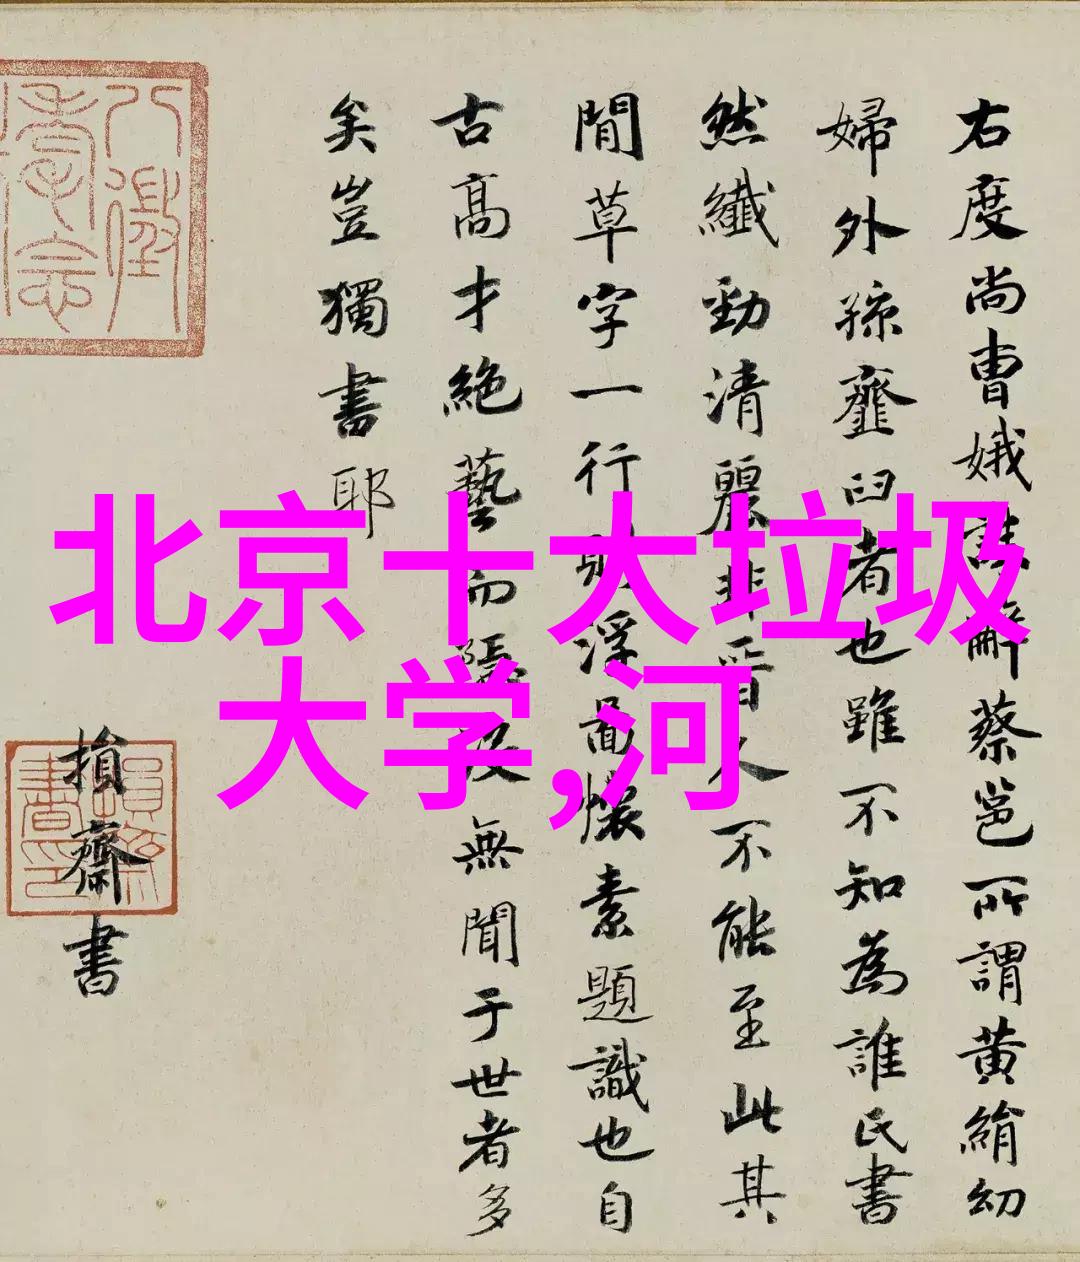 右度尚曹娥誄辭蔡邕所謂黃絹幼
婦外孫韲臼者也雖不知為誰氏書
然纖勁清麗非晉人不能至此其
閒草字一行則浮啚懷素題識也自
古高才絕藝而隱沒無聞于世者多
矣豈獨書耶
損齋書
北京十大垃圾
大学,河